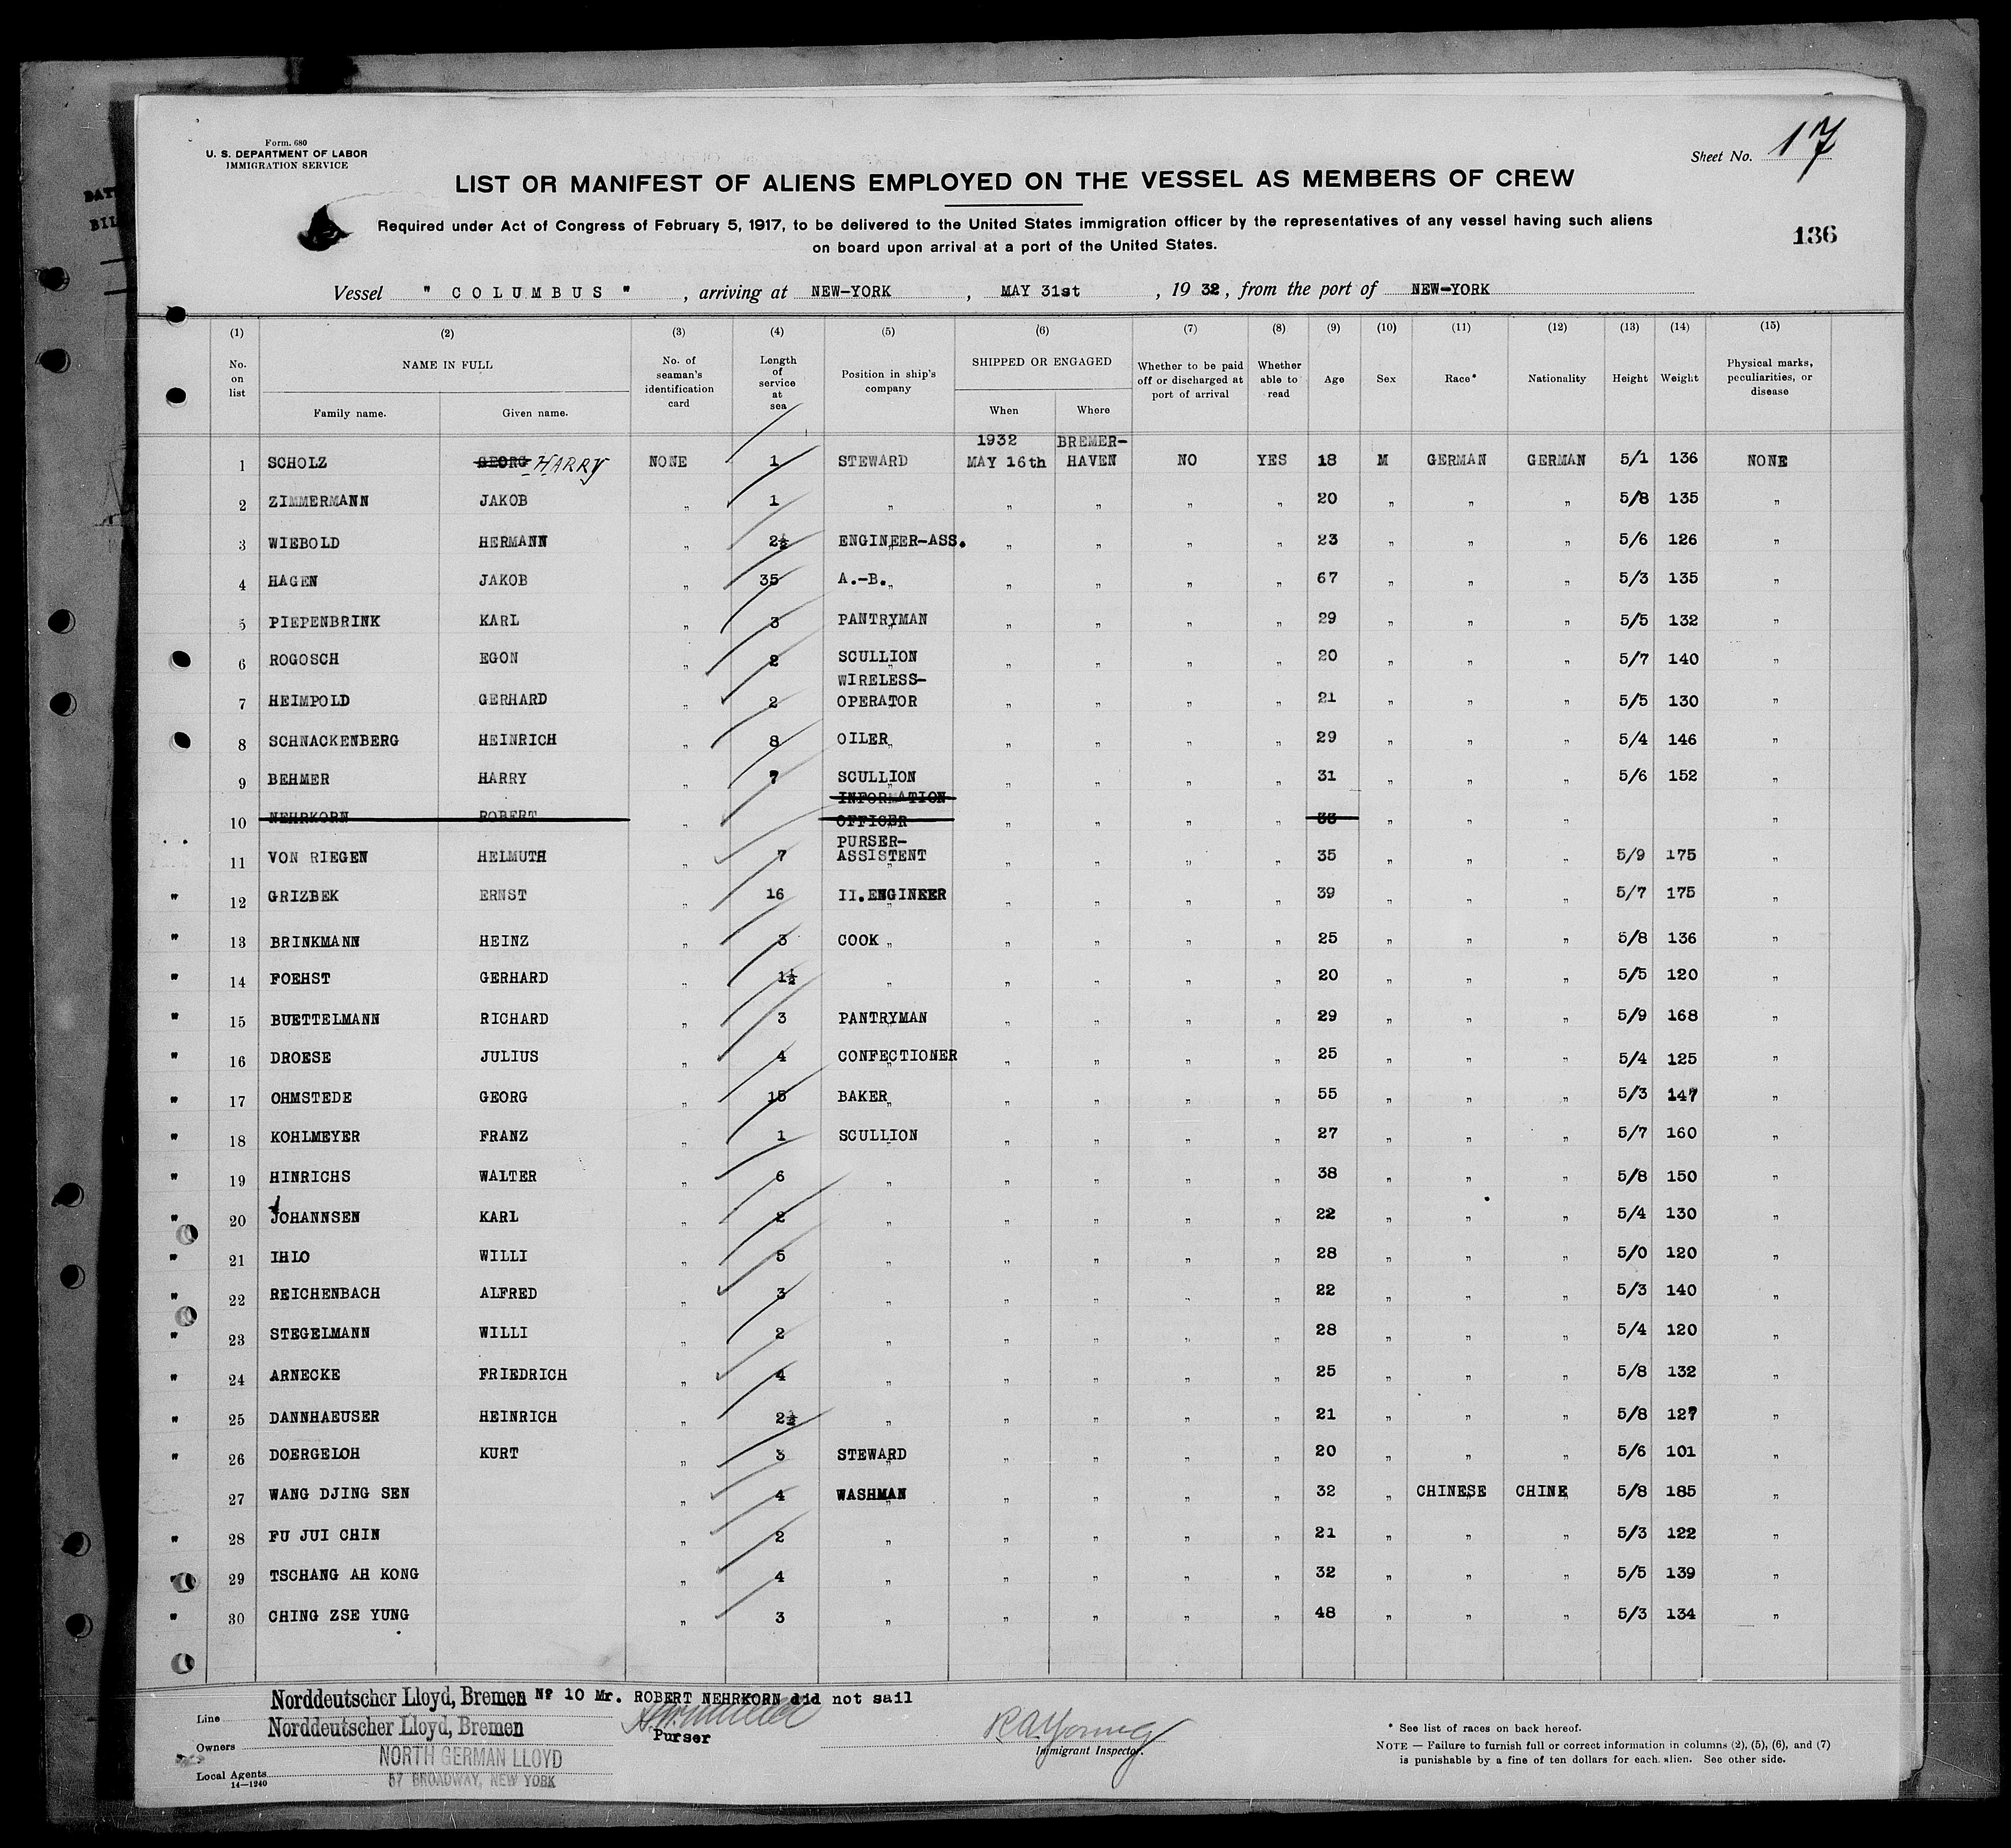 Form. 680
U. S. DEPARTMENT OF LABOR
IMMIGRATION SERVICE
Sheet No. 17
LIST OR MANIFEST OF ALIENS EMPLOYED ON THE VESSEL AS MEMBERS OF CREW
Required under Act of Congress of February 5, 1917, to be delivered to the United States immigration officer by the representatives of any vessel having such aliens
on board upon arrival at a port of the United States.
136
Vessel " COLUMBUS " , arriving at NEW-YORK , MAY 31st , 19 32 , from the port of NEW-YORK
(1) (2) (3) (4) (5) (6) (7) (8) (9) (10) (11) (12) (13) (14) (15)
No. on list NAME IN FULL Family name. Given name. No. of seaman's identification card Length of service at sea Position in ship's company SHIPPED OR ENGAGED When Where Whether to be paid off or discharged at port of arrival Whether able to read Age Sex Race* Nationality Height Weight Physical marks, peculiarities, or disease
1932 BREMER-
1 SCHOLZ GEORG HARRY NONE 1 STEWARD MAY 16th HAVEN NO YES 18 M GERMAN GERMAN 5/1 136 NONE
2 ZIMMERMANN JAKOB " 1 " " " " " 20 " " " 5/8 135 "
3 WIEBOLD HERMANN " 2½ ENGINEER-ASS. " " " " 23 " " " 5/6 126 "
4 HAGEN JAKOB " 35 A.-B. " " " " 67 " " " 5/3 135 "
5 PIEPENBRINK KARL " 3 PANTRYMAN " " " " 29 " " " 5/5 132 "
6 ROGOSCH EGON " 2 SCULLION " " " " 20 " " " 5/7 140 "
WIRELESS-
7 HEIMPOLD GERHARD " 2 OPERATOR " " " " 21 " " " 5/5 130 "
8 SCHNACKENBERG HEINRICH " 8 OILER " " " " 29 " " " 5/4 146 "
9 BEHMER HARRY " 7 SCULLION " " " " 31 " " " 5/6 152 "
INFORMATION
10 NEHRKORN ROBERT " OFFICER " " " " 33 " " " "
PURSER-
11 VON RIEGEN HELMUTH " 7 ASSISTENT " " " " 35 " " " 5/9 175 "
" 12 GRIZBEK ERNST " 16 II.ENGINEER " " " " 39 " " " 5/7 175 "
" 13 BRINKMANN HEINZ " 3 COOK " " " " 25 " " " 5/8 136 "
" 14 FOEHST GERHARD " 1½ " " " " " 20 " " " 5/5 120 "
" 15 BUETTELMANN RICHARD " 3 PANTRYMAN " " " " 29 " " " 5/9 168 "
" 16 DROESE JULIUS " 4 CONFECTIONER " " " " 25 " " " 5/4 125 "
" 17 OHMSTEDE GEORG " 15 BAKER " " " " 55 " " " 5/3 147 "
" 18 KOHLMEYER FRANZ " 1 SCULLION " " " " 27 " " " 5/7 160 "
" 19 HINRICHS WALTER " 6 " " " " " 38 " " " 5/8 150 "
" 20 JOHANNSEN KARL " 2 " " " " " 22 " " " 5/4 130 "
" 21 IHLO WILLI " 5 " " " " " 28 " " " 5/0 120 "
" 22 REICHENBACH ALFRED " 3 " " " " " 22 " " " 5/3 140 "
" 23 STEGELMANN WILLI " 2 " " " " " 28 " " " 5/4 120 "
" 24 ARNECKE FRIEDRICH " 4 " " " " " 25 " " " 5/8 132 "
" 25 DANNHAEUSER HEINRICH " 2½ " " " " " 21 " " " 5/8 127 "
" 26 DOERGELOH KURT " 3 STEWARD " " " " 20 " " " 5/6 101 "
27 WANG DJING SEN " 4 WASHMAN " " " " 32 " CHINESE CHINE 5/8 185 "
" 28 FU JUI CHIN " 2 " " " " " 21 " " " 5/3 122 "
" 29 TSCHANG AH KONG " 4 " " " " " 32 " " " 5/5 139 "
" 30 CHING ZSE YUNG " 3 " " " " " 48 " " " 5/3 134 "
Line Norddeutscher Lloyd, Bremen Nº 10 Mr. ROBERT NEHRKORN did not sail
Owners Norddeutscher Lloyd, Bremen
Purser
R A Young
Immigrant Inspector.
Local Agents NORTH GERMAN LLOYD
57 BROADWAY, NEW YORK
14—1240
* See list of races on back hereof.
NOTE — Failure to furnish full or correct information in columns (2), (5), (6), and (7)
is punishable by a fine of ten dollars for each alien. See other side.